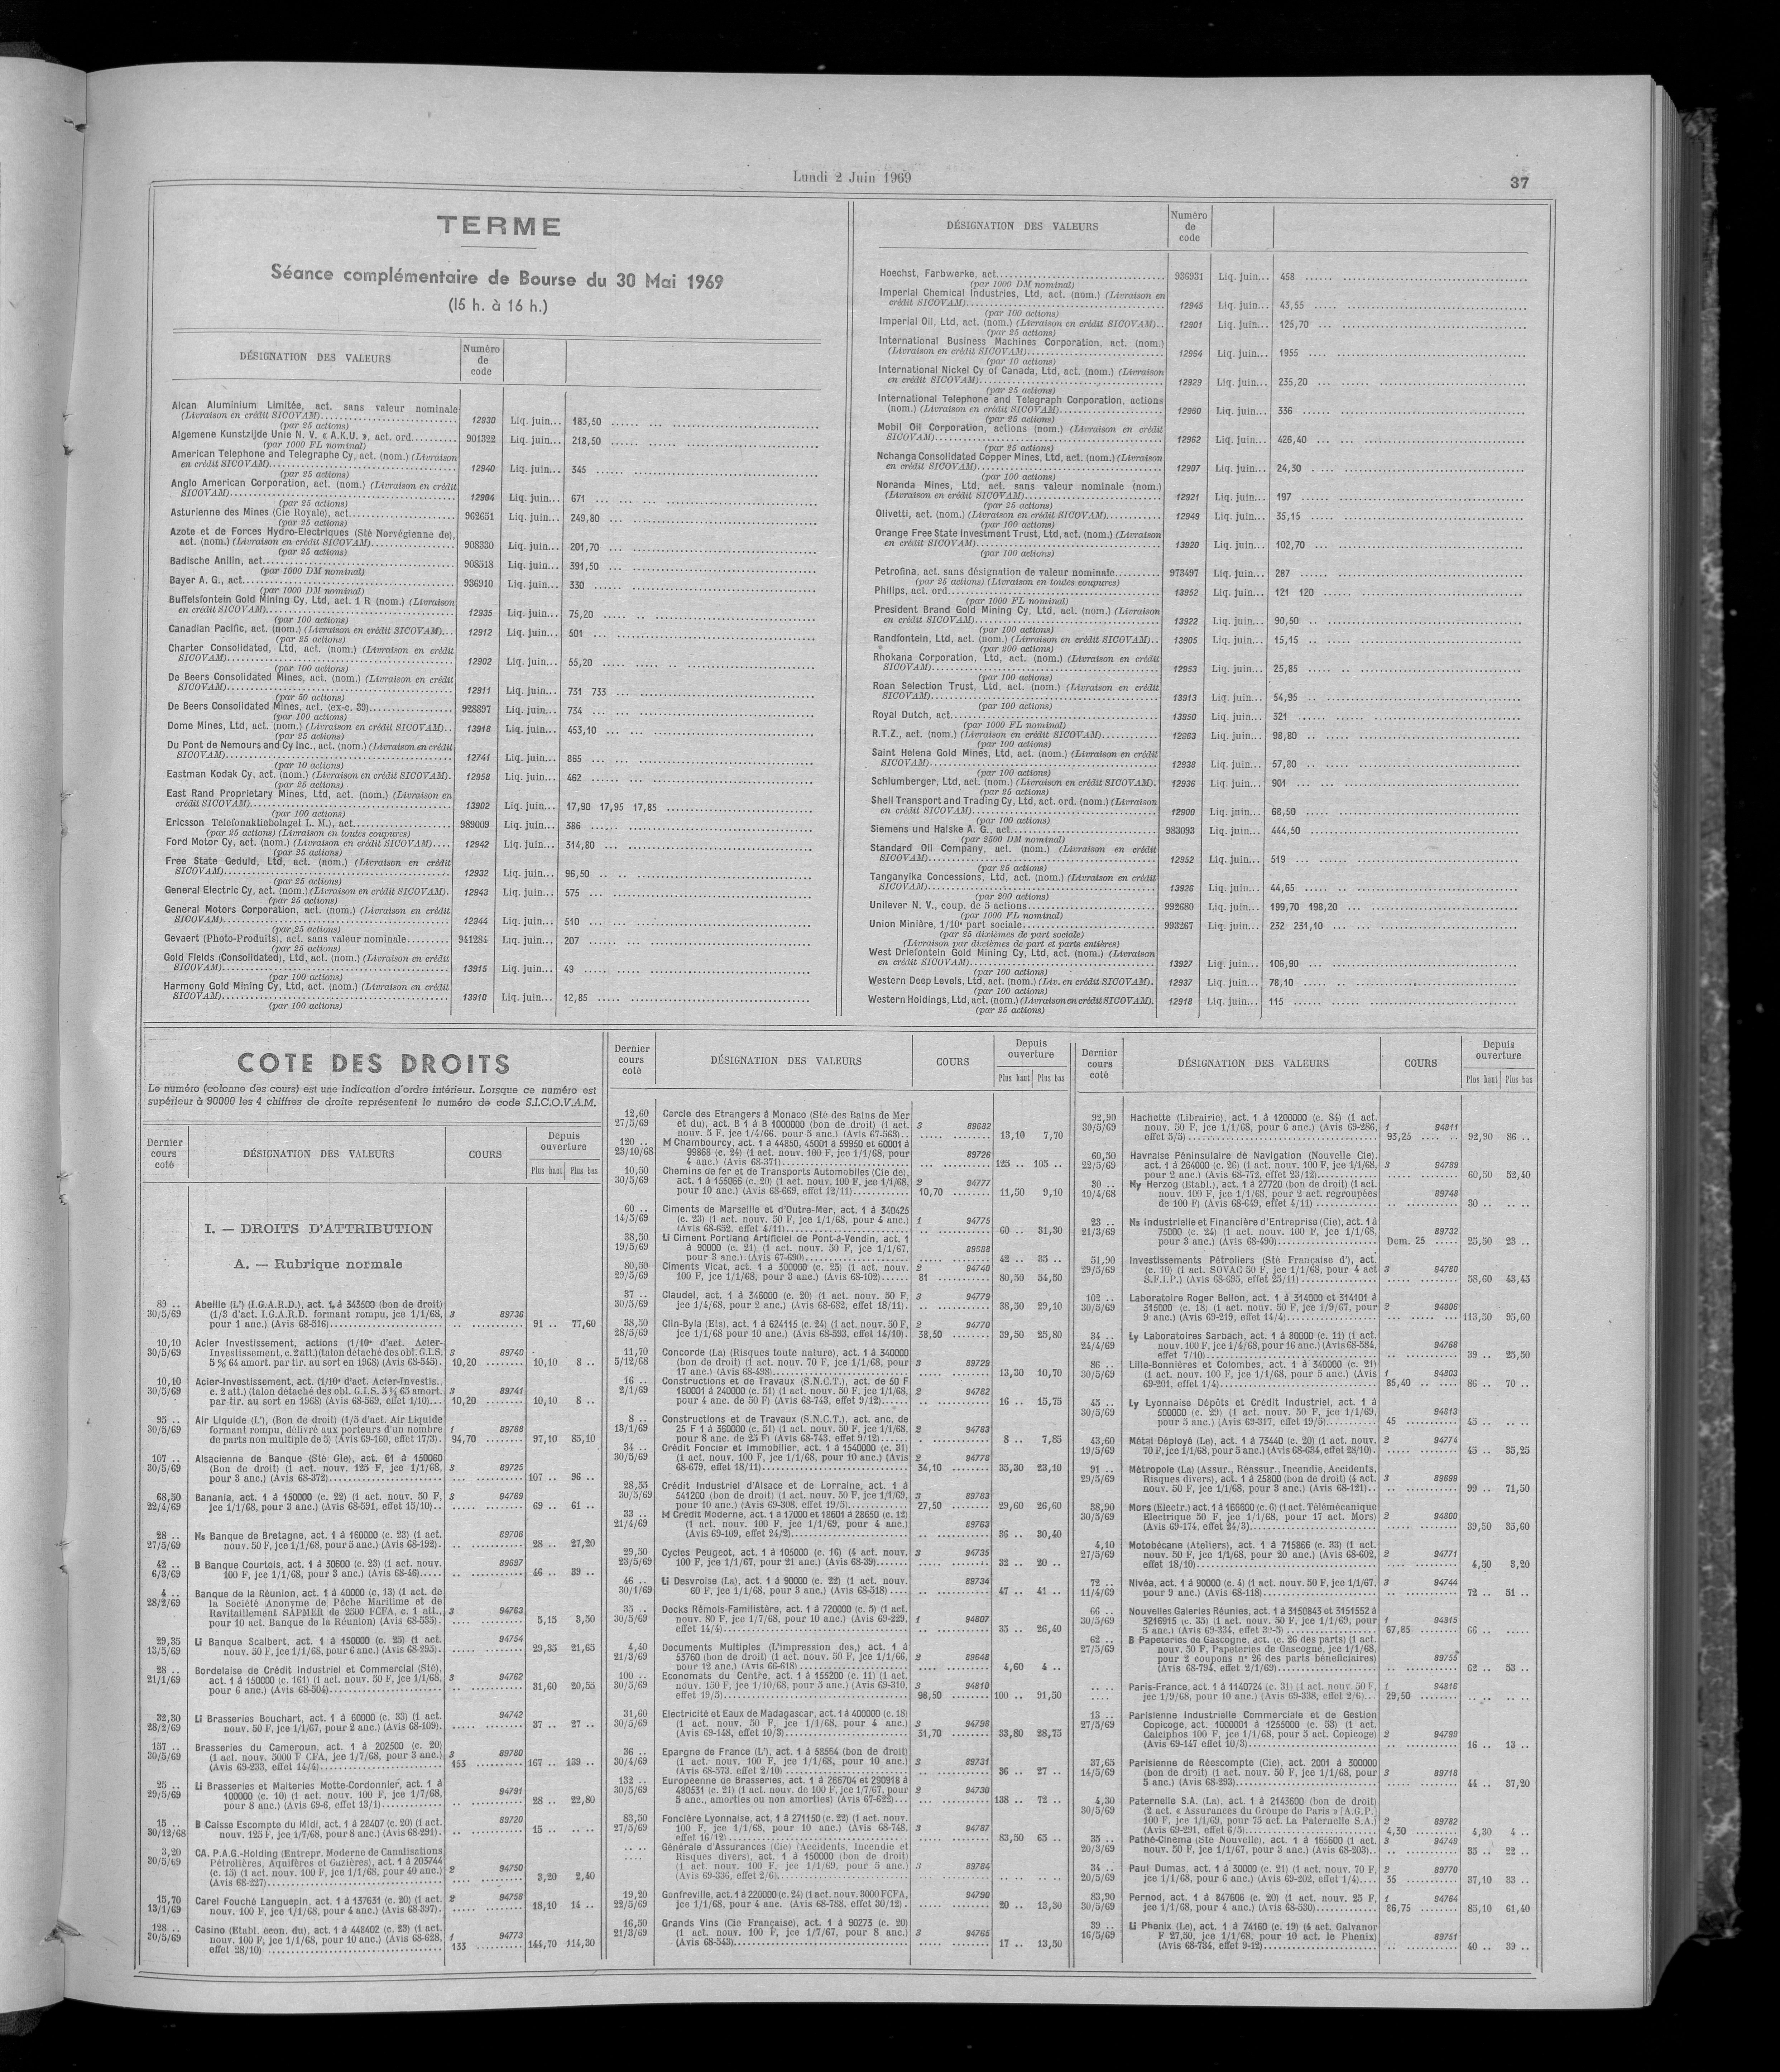 Lundi 2 Juin 1969
37
TERME
Séance complémentaire de Bourse du 30 Mai 1969
(15 h. à 16 h.)
DÉSIGNATION DES VALEURS
Numéro
de
code
Alcan Aluminium Limitée, act. sans valeur nominale
(Livraison en crédit SICOVAM) 12930 Liq. juin... 183,50
(par 25 actions)
Algemene Kunstzijde Unie N. V. « A.K.U. », act. ord. 901322 Liq. juin... 218,50
(par 1000 FL nominal)
American Telephone and Telegraphe Cy, act. (nom.) (Livraison
en crédit SICOVAM) 12940 Liq. juin... 345
(par 25 actions)
Anglo American Corporation, act. (nom.) (Livraison en crédit
SICOVAM) 12904 Liq. juin... 671
(par 25 actions)
Asturienne des Mines (Cie Royale), act. 962651 Liq. juin... 249,80
(par 25 actions)
Azote et de Forces Hydro-Electriques (Sté Norvégienne de),
act. (nom.) (Livraison en crédit SICOVAM) 908330 Liq. juin... 201,70
(par 25 actions)
Badische Anilin, act. 908518 Liq. juin... 391,50
(par 1000 DM nominal)
Bayer A. G., act. 936910 Liq. juin... 330
(par 1000 DM nominal)
Buffelsfontein Gold Mining Cy, Ltd, act. 1 R (nom.) (Livraison
en crédit SICOVAM) 12935 Liq. juin... 75,20
(par 100 actions)
Canadian Pacific, act. (nom.) (Livraison en crédit SICOVAM)... 12912 Liq. juin... 501
(par 25 actions)
Charter Consolidated, Ltd, act. (nom.) (Livraison en crédit
SICOVAM) 12902 Liq. juin... 55,20
(par 100 actions)
De Beers Consolidated Mines, act. (nom.) (Livraison en crédit
SICOVAM) 12911 Liq. juin... 731 733
(par 50 actions)
De Beers Consolidated Mines, act. (ex-c. 39) 928897 Liq. juin... 734
(par 100 actions)
Dome Mines, Ltd, act. (nom.) (Livraison en crédit SICOVAM).. 13918 Liq. juin... 453,10
(par 25 actions)
Du Pont de Nemours and Cy Inc., act. (nom.) (Livraison en crédit
SICOVAM) 12741 Liq. juin... 865
(par 10 actions)
Eastman Kodak Cy, act. (nom.) (Livraison en crédit SICOVAM). 12958 Liq. juin... 462
(par 25 actions)
East Rand Proprietary Mines, Ltd, act. (nom.) (Livraison en
crédit SICOVAM) 13902 Liq. juin... 17,90 17,95 17,85
(par 100 actions)
Ericsson Telefonaktiebolaget L. M.), act. 989009 Liq. juin... 386
(par 25 actions) (Livraison en toutes coupures)
Ford Motor Cy, act. (nom.) (Livraison en crédit SICOVAM).... 12942 Liq. juin... 314,80
(par 25 actions)
Free State Geduld, Ltd, act. (nom.) (Livraison en crédit
SICOVAM) 12932 Liq. juin... 96,50
(par 25 actions)
General Electric Cy, act. (nom.) (Livraison en crédit SICOVAM). 12943 Liq. juin... 575
(par 25 actions)
General Motors Corporation, act. (nom.) (Livraison en crédit
SICOVAM) 12944 Liq. juin... 510
(par 25 actions)
Gevaert (Photo-Produits), act. sans valeur nominale 941284 Liq. juin... 207
(par 25 actions)
Gold Fields (Consolidated), Ltd, act. (nom.) (Livraison en crédit
SICOVAM) 13915 Liq. juin... 49
(par 100 actions)
Harmony Gold Mining Cy, Ltd, act. (nom.) (Livraison en crédit
SICOVAM) 13910 Liq. juin... 12,85
(par 100 actions)
DÉSIGNATION DES VALEURS
Numéro
de
code
Hoechst, Farbwerke, act. 936931 Liq. juin... 458
(par 1000 DM nominal)
Imperial Chemical Industries, Ltd, act. (nom.) (Livraison en
crédit SICOVAM) 12945 Liq. juin... 43,55
(par 100 actions)
Imperial Oil, Ltd, act. (nom.) (Livraison en crédit SICOVAM).. 12901 Liq. juin... 125,70
(par 25 actions)
International Business Machines Corporation, act. (nom.)
(Livraison en crédit SICOVAM) 12954 Liq. juin... 1955
(par 10 actions)
International Nickel Cy of Canada, Ltd, act. (nom.) (Livraison
en crédit SICOVAM) 12929 Liq. juin... 235,20
(par 25 actions)
International Telephone and Telegraph Corporation, actions
(nom.) (Livraison en crédit SICOVAM) 12960 Liq. juin... 336
(par 25 actions)
Mobil Oil Corporation, actions (nom.) (Livraison en crédit
SICOVAM) 12962 Liq. juin... 426,40
(par 25 actions)
Nchanga Consolidated Copper Mines, Ltd, act. (nom.) (Livraison
en crédit SICOVAM) 12907 Liq. juin... 24,30
(par 100 actions)
Noranda Mines, Ltd, act. sans valeur nominale (nom.)
(Livraison en crédit SICOVAM) 12921 Liq. juin... 197
(par 25 actions)
Olivetti, act. (nom.) (Livraison en crédit SICOVAM) 12949 Liq. juin... 35,15
(par 100 actions)
Orange Free State Investment Trust, Ltd, act. (nom.) (Livraison
en crédit SICOVAM) 13920 Liq. juin... 102,70
(par 100 actions)
Petrofina, act. sans désignation de valeur nominale 973497 Liq. juin... 287
(par 25 actions) (Livraison en toutes coupures)
Philips, act. ord. 13952 Liq. juin... 121 120
(par 1000 FL nominal)
President Brand Gold Mining Cy, Ltd, act. (nom.) (Livraison
en crédit SICOVAM) 13922 Liq. juin... 90,50
(par 100 actions)
Randfontein, Ltd, act. (nom.) (Livraison en crédit SICOVAM).. 13905 Liq. juin... 15,15
(par 200 actions)
Rhokana Corporation, Ltd, act. (nom.) (Livraison en crédit
SICOVAM) 12953 Liq. juin... 25,85
(par 100 actions)
Roan Selection Trust, Ltd, act. (nom.) (Livraison en crédit
SICOVAM) 13913 Liq. juin... 54,95
(par 100 actions)
Royal Dutch, act. 13950 Liq. juin... 321
(par 1000 FL nominal)
R.T.Z., act. (nom.) (Livraison en crédit SICOVAM) 12963 Liq. juin... 98,80
(par 100 actions)
Saint Helena Gold Mines, Ltd, act. (nom.) (Livraison en crédit
SICOVAM) 12938 Liq. juin... 57,80
(par 100 actions)
Schlumberger, Ltd, act. (nom.) (Livraison en crédit SICOVAM). 12936 Liq. juin... 901
(par 25 actions)
Shell Transport and Trading Cy, Ltd, act. ord. (nom.) (Livraison
en crédit SICOVAM) 12900 Liq. juin... 68,50
(par 100 actions)
Siemens und Halske A. G., act. 983093 Liq. juin... 444,50
(par 2500 DM nominal)
Standard Oil Company, act. (nom.) (Livraison en crédit
SICOVAM) 12952 Liq. juin... 519
(par 25 actions)
Tanganyika Concessions, Ltd, act. (nom.) (Livraison en crédit
SICOVAM) 13926 Liq. juin... 44,65
(par 200 actions)
Unilever N. V., coup. de 5 actions 992680 Liq. juin... 199,70 198,20
(par 1000 FL nominal)
Union Minière, 1/10e part sociale 993267 Liq. juin... 232 231,10
(par 25 dixièmes de part sociale)
(Livraison par dixièmes de part et parts entières)
West Driefontein Gold Mining Cy, Ltd, act. (nom.) (Livraison
en crédit SICOVAM) 13927 Liq. juin... 106,90
(par 100 actions)
Western Deep Levels, Ltd, act. (nom.) (Liv. en crédit SICOVAM). 12937 Liq. juin... 78,10
(par 100 actions)
Western Holdings, Ltd, act. (nom.) (Livraison en crédit SICOVAM). 12918 Liq. juin... 115
(par 25 actions)
COTE DES DROITS
Le numéro (colonne des cours) est une indication d'ordre intérieur. Lorsque ce numéro est
supérieur à 90000 les 4 chiffres de droite représentent le numéro de code S.I.C.O.V.A.M.
Dernier cours coté
DÉSIGNATION DES VALEURS
COURS
Depuis ouverture
Plus haut Plus bas
I. — DROITS D'ATTRIBUTION
A. — Rubrique normale
89 .. Abeille (L') (I.G.A.R.D.), act. 1 à 343500 (bon de droit)
30/5/69 (1/3 d'act. I.G.A.R.D. formant rompu, jce 1/1/68, 3 89736
pour 1 anc.) (Avis 68-516) 91 .. 77,60
10,10 Acier Investissement, actions (1/10e d'act. Acier-
30/5/69 Investissement, c. 2 att.) (talon détaché des obl. G.I.S. 3 89740
5 % 64 amort. par tir. au sort en 1968) (Avis 68-545). 10,20 10,10 8 ..
10,10 Acier-Investissement, act. (1/10e d'act. Acier-Investis.,
30/5/69 c. 2 att.) (talon détaché des obl. G.I.S. 5 % 65 amort. 3 89741
par tir. au sort en 1968) (Avis 68-569, effet 1/10)... 10,20 10,10 8 ..
95 .. Air Liquide (L'), (Bon de droit) (1/5 d'act. Air Liquide
30/5/69 formant rompu, délivré aux porteurs d'un nombre f 89768
de parts non multiple de 5) (Avis 69-160, effet 17/3). 94,70 97,10 85,10
107 .. Alsacienne de Banque (Sté Gle), act. 61 à 150060
30/5/69 (Bon de droit) (1 act. nouv. 125 F, jce 1/1/68, 3 89725
pour 3 anc.) (Avis 68-372) 107 .. 96 ..
68,50 Banania, act. 1 à 150000 (c. 22) (1 act. nouv. 50 F, 3 94769
22/4/69 jce 1/1/68, pour 3 anc.) (Avis 68-591, effet 15/10)... 69 .. 61 ..
28 .. Ns Banque de Bretagne, act. 1 à 160000 (c. 23) (1 act. 89706
27/5/69 nouv. 50 F, jce 1/1/68, pour 5 anc.) (Avis 68-192).. 28 .. 27,20
42 .. B Banque Courtois, act. 1 à 30600 (c. 23) (1 act. nouv. 89697
6/3/69 100 F, jce 1/1/68, pour 3 anc.) (Avis 68-46) 46 .. 39 ..
4 .. Banque de la Réunion, act. 1 à 40000 (c. 13) (1 act. de
28/2/69 la Société Anonyme de Pêche Maritime et de
Ravitaillement SAPMER de 2500 FCFA, c. 1 att., 3 94763
pour 10 act. Banque de la Réunion) (Avis 68-535).. 5,15 3,50
29,35 Li Banque Scalbert, act. 1 à 150000 (c. 25) (1 act. 94754
13/5/69 nouv. 50 F, jce 1/1/68, pour 6 anc.) (Avis 68-295).. 29,35 21,65
28 .. Bordelaise de Crédit Industriel et Commercial (Sté),
21/1/69 act. 1 à 150000 (c. 161) (1 act. nouv. 50 F, jce 1/1/68, 3 94762
pour 6 anc.) (Avis 68-504) 31,60 20,55
32,30 Li Brasseries Bouchart, act. 1 à 60000 (c. 33) (1 act. 94742
28/2/69 nouv. 50 F, jce 1/1/67, pour 2 anc.) (Avis 68-109).. 37 .. 27 ..
157 .. Brasseries du Cameroun, act. 1 à 202500 (c. 20)
30/5/69 (1 act. nouv. 5000 F CFA, jce 1/7/68, pour 3 anc.) 3 89780
(Avis 69-233, effet 14/4) 155 167 .. 139 ..
25 .. Li Brasseries et Malteries Motte-Cordonnier, act. 1 à
29/5/69 100000 (c. 10) (1 act. nouv. 100 F, jce 1/7/68, 94791
pour 8 anc.) (Avis 69-6, effet 13/1) 28 .. 22,80
15 .. B Caisse Escompte du Midi, act. 1 à 28407 (c. 20) (1 act. 89720
30/12/68 nouv. 125 F, jce 1/7/68, pour 8 anc.) (Avis 68-291). 15 ..
3,20 CA. P.A.G.-Holding (Entrepr. Moderne de Canalisations
30/5/69 Pétrolières, Aquifères et Gazières), act. 1 à 203744
(c. 15) (1 act. nouv. 100 F, jce 1/1/68, pour 40 anc.) 2 94750
(Avis 68-227) 3,20 2,40
15,70 Carel Fouché Languepin, act. 1 à 137631 (c. 20) (1 act. 2 94758
13/1/69 nouv. 100 F, jce 1/1/68, pour 4 anc.) (Avis 68-397). 18,10 14 ..
128 .. Casino (Etabl. écon. du), act. 1 à 448402 (c. 23) (1 act.
30/5/69 nouv. 100 F, jce 1/1/68, pour 10 anc.) (Avis 68-628, f 94773
effet 28/10) 133 144,70 114,30
Dernier cours coté
DÉSIGNATION DES VALEURS
COURS
Depuis ouverture
Plus haut Plus bas
12,60 Cercle des Etrangers à Monaco (Sté des Bains de Mer
27/5/69 et du), act. B 1 à B 1000000 (bon de droit) (1 act. 3 89682
nouv. 5 F, jce 1/4/66, pour 5 anc.) (Avis 67-563).. 13,10 7,70
120 .. M Chambourcy, act. 1 à 44850, 45001 à 59950 et 60001 à
23/10/68 99868 (c. 24) (1 act. nouv. 100 F, jce 1/1/68, pour 89726
4 anc.) (Avis 68-371) 125 .. 105 ..
10,50 Chemins de fer et de Transports Automobiles (Cie de),
30/5/69 act. 1 à 155056 (c. 20) (1 act. nouv. 100 F, jce 1/1/68, 2 94777
pour 10 anc.) (Avis 68-669, effet 12/11) 10,70 11,50 9,10
60 .. Ciments de Marseille et d'Outre-Mer, act. 1 à 340425
14/5/69 (c. 23) (1 act. nouv. 50 F, jce 1/1/68, pour 4 anc.) f 94775
(Avis 68-652, effet 4/11) 60 .. 31,30
38,50 Li Ciment Portland Artificiel de Pont-à-Vendin, act. 1
19/5/69 à 90000 (c. 21) (1 act. nouv. 50 F, jce 1/1/67, 89688
pour 3 anc.) (Avis 67-690) 42 .. 35 ..
80,50 Ciments Vicat, act. 1 à 300000 (c. 25) (1 act. nouv. 2 94740
29/5/69 100 F, jce 1/1/68, pour 3 anc.) (Avis 68-102) 81 80,50 54,50
37 .. Claudel, act. 1 à 346000 (c. 20) (1 act. nouv. 50 F, 3 94779
30/5/69 jce 1/4/68, pour 2 anc.) (Avis 68-682, effet 18/11). 38,50 29,10
38,50 Clin-Byla (Ets), act. 1 à 624115 (c. 24) (1 act. nouv. 50 F, 2 94770
28/5/69 jce 1/1/68 pour 10 anc.) (Avis 68-593, effet 14/10). 38,50 39,50 25,80
11,70 Concorde (La) (Risques toute nature), act. 1 à 340000
5/12/68 (bon de droit) (1 act. nouv. 70 F, jce 1/1/68, pour 3 89729
17 anc.) (Avis 68-498) 13,30 10,70
16 .. Constructions et de Travaux (S.N.C.T.), act. de 50 F
2/1/69 180001 à 240000 (c. 51) (1 act. nouv. 50 F, jce 1/1/68, 2 94782
pour 4 anc. de 50 F) (Avis 68-743, effet 9/12) 16 .. 15,75
8 .. Constructions et de Travaux (S.N.C.T.), act. anc. de
13/1/69 25 F 1 à 360000 (c. 51) (1 act. nouv. 50 F, jce 1/1/68, 2 94783
pour 8 anc. de 25 F) (Avis 68-743, effet 9/12) 8 .. 7,85
34 .. Crédit Foncier et Immobilier, act. 1 à 1540000 (c. 31)
30/5/69 (1 act. nouv. 100 F, jce 1/1/68, pour 10 anc.) (Avis 2 94778
68-679, effet 18/11) 34,10 35,30 23,10
28,55 Crédit Industriel d'Alsace et de Lorraine, act. 1 à
30/5/69 541200 (bon de droit) (1 act. nouv. 50 F, jce 1/1/69, 3 89783
pour 10 anc.) (Avis 69-308, effet 19/5) 27,50 29,60 26,60
33 .. M Crédit Moderne, act. 1 à 17000 et 18601 à 28650 (c. 12)
21/4/69 (1 act. nouv. 100 F, jce 1/1/69, pour 4 anc.) 89763
(Avis 69-109, effet 24/2) 36 .. 30,40
29,50 Cycles Peugeot, act. 1 à 105000 (c. 16) (4 act. nouv. 3 94735
23/5/69 100 F, jce 1/1/67, pour 21 anc.) (Avis 68-39) 32 .. 20 ..
46 .. Li Desvroise (La), act. 1 à 90000 (c. 22) (1 act. nouv. 89734
30/1/69 60 F, jce 1/1/68, pour 3 anc.) (Avis 68-518) 47 .. 41 ..
35 .. Docks Rémois-Familistère, act. 1 à 720000 (c. 5) (1 act.
30/5/69 nouv. 80 F, jce 1/7/68, pour 10 anc.) (Avis 69-229, f 94807
effet 14/4) 35 .. 26,40
4,40 Documents Multiples (L'impression des,) act. 1 à
21/3/69 53760 (bon de droit) (1 act. nouv. 50 F, jce 1/1/66, 2 89648
pour 12 anc.) (Avis 66-618) 4,60 4 ..
100 .. Economats du Centre, act. 1 à 155200 (c. 11) (1 act.
30/5/69 nouv. 150 F, jce 1/10/68, pour 5 anc.) (Avis 69-310, 3 94810
effet 19/5) 98,50 100 .. 91,50
31,60 Electricité et Eaux de Madagascar, act. 1 à 400000 (c. 18)
30/5/69 (1 act. nouv. 50 F, jce 1/1/68, pour 4 anc.) 3 94798
(Avis 69-148, effet 10/3) 31,70 33,80 28,75
36 .. Epargne de France (L'), act. 1 à 58564 (bon de droit)
30/4/69 (1 act. nouv. 100 F, jce 1/1/68, pour 10 anc.) 3 89731
(Avis 68-573, effet 2/10) 36 .. 27 ..
132 .. Européenne de Brasseries, act. 1 à 266704 et 290918 à
30/5/69 480531 (c. 21) (1 act. nouv. de 100 F, jce 1/7/67, pour 2 94730
5 anc., amorties ou non amorties) (Avis 67-622) 138 .. 72 ..
83,50 Foncière Lyonnaise, act. 1 à 271150 (c. 22) (1 act. nouv.
27/5/69 100 F, jce 1/1/68, pour 10 anc.) (Avis 68-748, 3 94787
effet 16/12) 83,50 65 ..
Générale d'Assurances (Cie) (Accidents, Incendie et
Risques divers), act. 1 à 150000 (bon de droit)
(1 act. nouv. 100 F, jce 1/1/69, pour 5 anc.) 3 89784
(Avis 69-336, effet 2/6)
19,20 Gonfreville, act. 1 à 220000 (c. 24) (1 act. nouv. 3000 FCFA, 94790
22/5/69 jce 1/1/68, pour 4 anc. (Avis 68-788, effet 30/12). 20 .. 13,30
16,50 Grands Vins (Cie Française), act. 1 à 90273 (c. 20)
21/3/69 (1 act. nouv. 100 F, jce 1/7/67, pour 8 anc.) 3 94765
(Avis 68-543) 17 .. 13,50
Dernier cours coté
DÉSIGNATION DES VALEURS
COURS
Depuis ouverture
Plus haut Plus bas
92,90 Hachette (Librairie), act. 1 à 1200000 (c. 84) (1 act.
30/5/69 nouv. 50 F, jce 1/1/68, pour 6 anc.) (Avis 69-286, f 94811
effet 5/5) 93,25 92,90 86 ..
60,50 Havraise Péninsulaire de Navigation (Nouvelle Cie),
22/5/69 act. 1 à 264000 (c. 26) (1 act. nouv. 100 F, jce 1/1/68, 3 94789
pour 2 anc.) (Avis 68-772, effet 23/12) 60,50 52,40
30 .. Ny Herzog (Etabl.), act. 1 à 27720 (bon de droit) (1 act.
10/4/68 nouv. 100 F, jce 1/1/68, pour 2 act. regroupées 89748
de 100 F) (Avis 68-649, effet 4/11) 30 ..
23 .. Ns Industrielle et Financière d'Entreprise (Cie), act. 1 à
21/3/69 75000 (c. 24) (1 act. nouv. 100 F, jce 1/1/68, 89732
pour 3 anc.) (Avis 68-490) Dem. 25 25,50 23 ..
51,90 Investissements Pétroliers (Sté Française d'), act.
29/5/69 (c. 10) (1 act. SOVAC 50 F, jce 1/1/68, pour 4 act 3 94780
S.F.I.P.) (Avis 68-695, effet 25/11) 58,60 43,45
102 .. Laboratoire Roger Bellon, act. 1 à 314000 et 314101 à
30/5/69 315000 (c. 18) (1 act. nouv. 50 F, jce 1/9/67, pour 2 94806
9 anc.) (Avis 69-219, effet 14/4) 113,50 95,60
34 .. Ly Laboratoires Sarbach, act. 1 à 80000 (c. 11) (1 act.
24/4/69 nouv. 100 F, jce 1/4/68, pour 16 anc.) (Avis 68-584, 94768
effet 7/10) 39 .. 25,50
86 .. Lille-Bonnières et Colombes, act. 1 à 340000 (c. 21)
30/5/69 (1 act. nouv. 100 F, jce 1/1/68, pour 5 anc.) (Avis f 94803
69-201, effet 1/4) 85,40 86 .. 70 ..
45 .. Ly Lyonnaise Dépôts et Crédit Industriel, act. 1 à
30/5/69 500000 (c. 29) (1 act. nouv. 50 F, jce 1/1/69, 94813
pour 5 anc.) (Avis 69-317, effet 19/5) 45 45 ..
43,60 Métal Déployé (Le), act. 1 à 73440 (c. 20) (1 act. nouv. 2 94774
19/5/69 70 F, jce 1/1/68, pour 5 anc.) (Avis 68-634, effet 28/10). 45 .. 33,25
91 .. Métropole (La) (Assur., Réassur., Incendie, Accidents,
29/5/69 Risques divers), act. 1 à 25800 (bon de droit) (4 act. 3 89699
nouv. 50 F, jce 1/1/68, pour 3 anc.) (Avis 68-121).. 99 .. 71,50
38,90 Mors (Electr.) act. 1 à 166600 (c. 6) (1 act. Télémécanique
30/5/69 Electrique 50 F, jce 1/1/68, pour 17 act. Mors) 2 94800
(Avis 69-174, effet 24/3) 39,50 35,60
4,10 Motobécane (Ateliers), act. 1 à 715866 (c. 33) (1 act.
27/5/69 nouv. 50 F, jce 1/1/68, pour 20 anc.) (Avis 68-602, 2 94771
effet 18/10) 4,50 3,20
72 .. Nivéa, act. 1 à 90000 (c. 4) (1 act. nouv. 50 F, jce 1/1/67, 3 94744
11/4/69 pour 9 anc.) (Avis 68-118) 72 .. 51 ..
66 .. Nouvelles Galeries Réunies, act. 1 à 3150843 et 3151552 à
30/5/69 3216915 (c. 35) (1 act. nouv. 50 F, jce 1/1/69, pour f 94815
5 anc.) (Avis 69-334, effet 30-5) 67,85 66 ..
62 .. B Papeteries de Gascogne, act. (c. 26 des parts) (1 act.
27/5/69 nouv. 50 F, Papeteries de Gascogne, jce 1/1/68,
pour 2 coupons n° 26 des parts bénéficiaires) 89755
(Avis 68-794, effet 2/1/69) 62 .. 53 ..
Paris-France, act. 1 à 1140724 (c. 31) (1 act. nouv. 50 F, f 94816
jce 1/9/68, pour 10 anc.) (Avis 69-338, effet 2/6)... 29,50
13 .. Parisienne Industrielle Commerciale et de Gestion
27/5/69 Copicoge, act. 1000001 à 1255000 (c. 53) (1 act.
Calciphos 100 F, jce 1/1/68, pour 5 act. Copicoge) 2 94799
(Avis 69-147 effet 10/3) 16 .. 13 ..
37,65 Parisienne de Réescompte (Cie), act. 2001 à 300000
14/5/69 (bon de droit) (1 act. nouv. 50 F, jce 1/1/68, pour 3 89718
5 anc.) (Avis 68-293) 44 .. 37,20
4,30 Paternelle S.A. (La), act. 1 à 2143600 (bon de droit)
30/5/69 (2 act. « Assurances du Groupe de Paris » [A.G.P.]
100 F, jce 1/1/69, pour 75 act. La Paternelle S.A.) 2 89782
(Avis 69-291, effet 6/5) 4,30 4,30 4 ..
35 .. Pathé-Cinéma (Sté Nouvelle), act. 1 à 165600 (1 act. 3 94749
20/3/69 nouv. 50 F, jce 1/1/67, pour 3 anc.) (Avis 68-203).. 35 .. 22 ..
34 .. Paul Dumas, act. 1 à 30000 (c. 21) (1 act. nouv. 70 F, 2 89770
20/5/69 jce 1/1/68, pour 6 anc.) (Avis 69-202, effet 1/4).... 35 37,10 33 ..
83,90 Pernod, act. 1 à 847606 (c. 20) (1 act. nouv. 25 F, f 94764
30/5/69 jce 1/1/68, pour 4 anc.) (Avis 68-530) 86,75 85,10 61,40
39 .. Li Phenix (Le), act. 1 à 74160 (c. 19) (4 act. Galvanor
16/5/69 F 27,50, jce 1/1/68, pour 10 act. le Phenix) 89751
(Avis 68-734, effet 9-12) 40 .. 39 ..